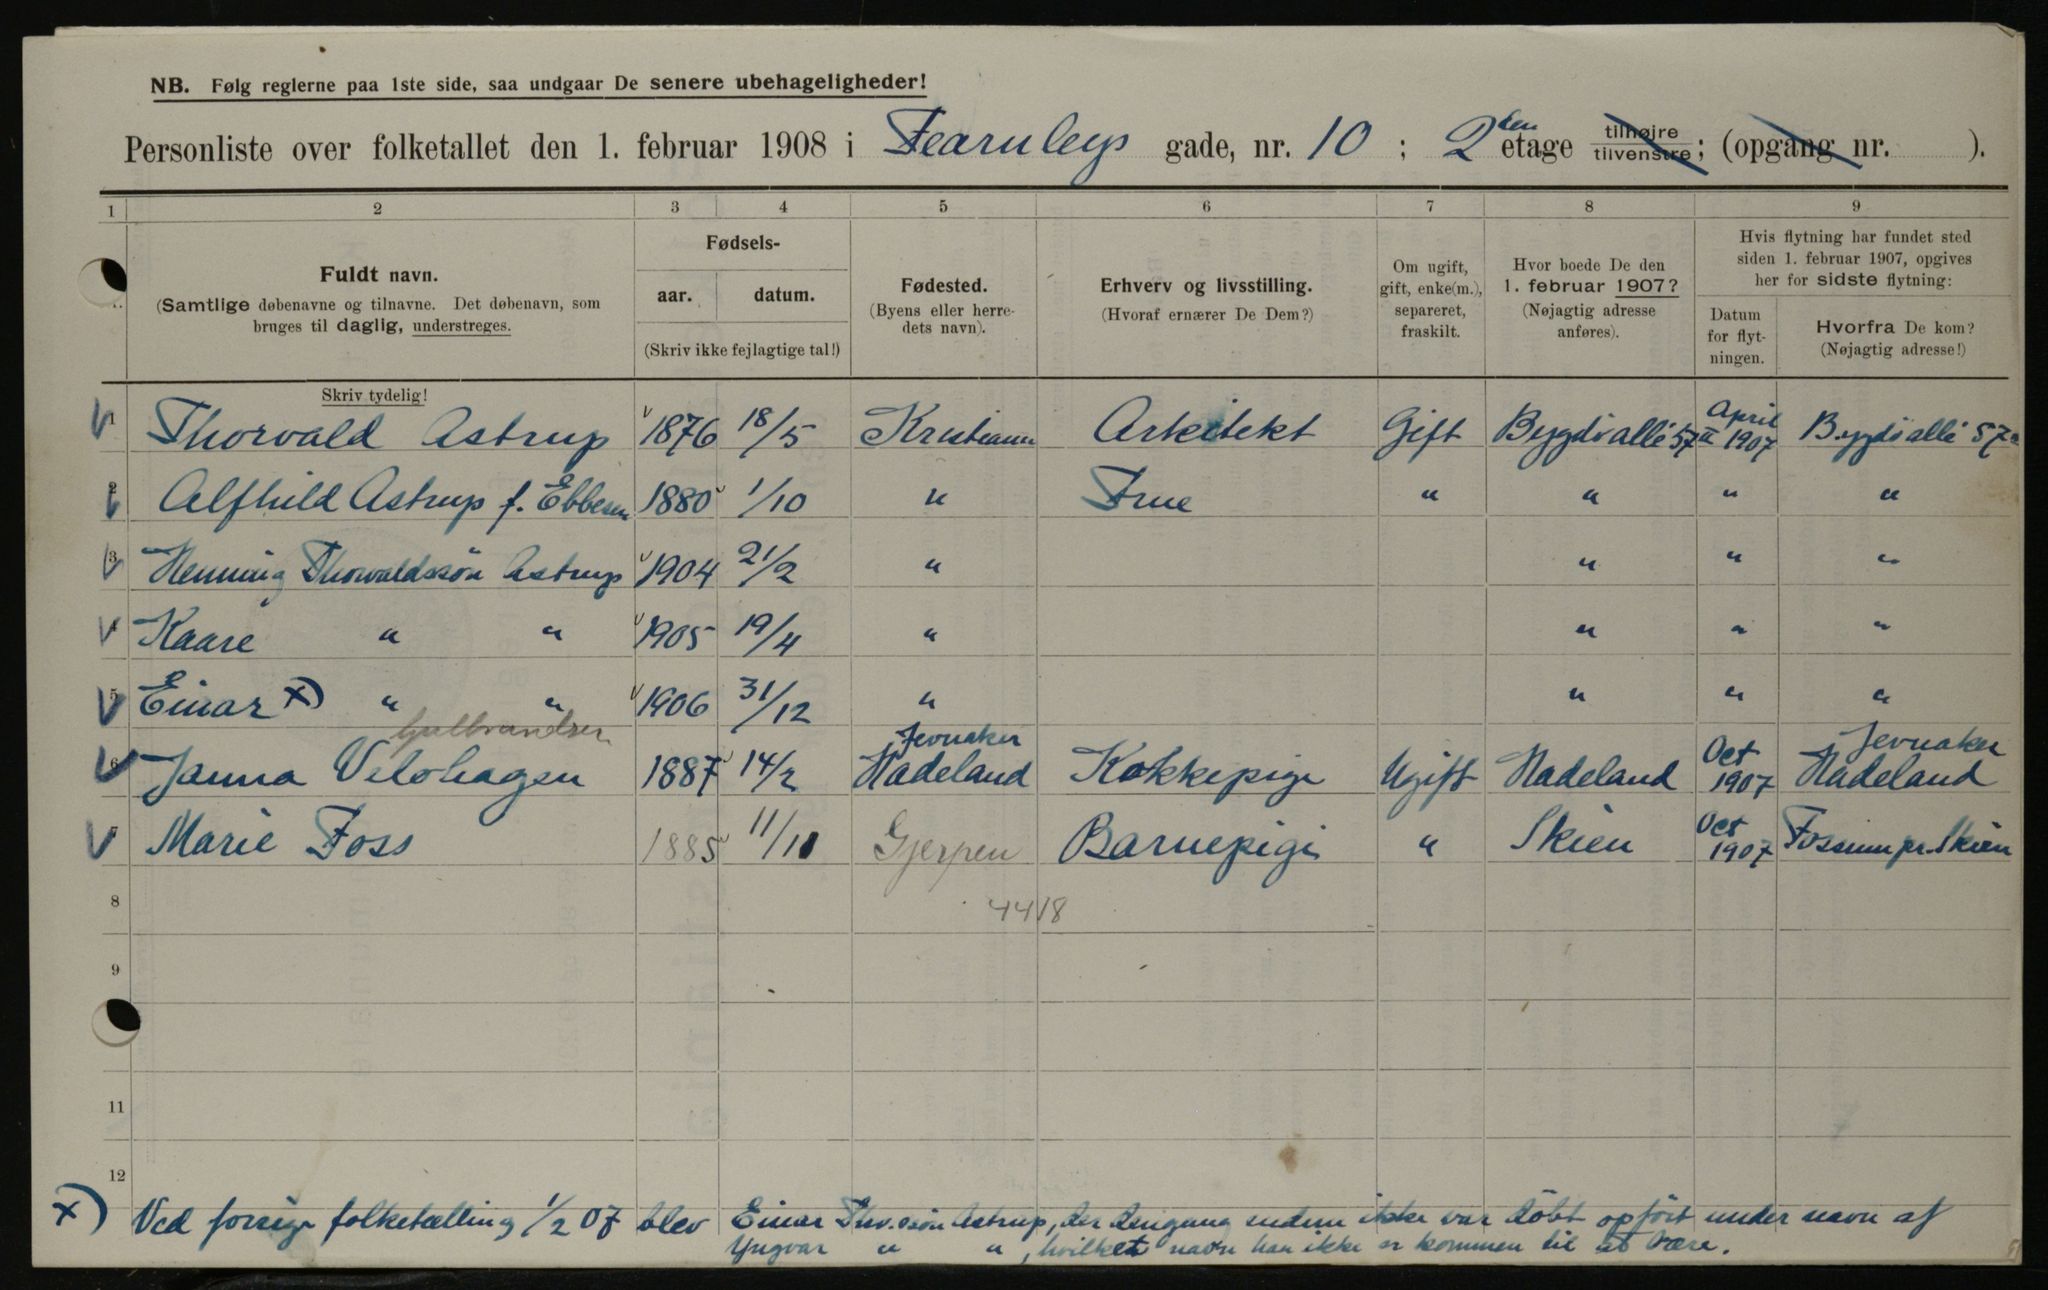 NB. Følg reglerne paa 1ste side, saa undgaar De senere ubehageligheder!
Personliste over folketallet den 1. februar 1908 i Fearnleys gade, nr. 10 ; 2den etage tilhøjre tilvenstre ; (opgang nr. ).
1 2 3 4 5 6 7 8 9
Fuldt navn.
(Samtlige døbenavne og tilnavne. Det døbenavn, som
bruges til daglig, understreges.
Skriv tydelig!
Fødsels-
aar. datum.
(Skriv ikke fejlagtige tal!)
Fødested.
(Byens eller herre-
dets navn).
Erhverv og livsstilling.
(Hvoraf ernærer De Dem?)
Om ugift,
gift, enke(m.),
separeret,
fraskilt.
Hvor boede De den
1. februar 1907?
(Nøjagtig adresse
anføres).
Hvis flytning har fundet sted
siden 1. februar 1907, opgives
her for sidste flytning:
Datum
for flyt-
ningen.
Hvorfra De kom?
(Nøjagtig adresse!)
1 Thorvald Astrup 1876 18/5 Kristiania Arkitekt Gift Bygdø allé 57a April 1907 Bygdø allé 57a
2 Alfhild Astrup f. Ebbesen 1880 1/10 " Frue " " " "
3 Henning Thorvaldssøn Astrup 1904 21/2 " " " "
4 Kaare " " 1905 19/4 " " " "
5 Einar x) " " 1906 31/12 " " " "
Gulbrandsen
6 Janna Velohagen 1887 14/2 Jevnaker Hadeland Kokkepige Ugift Hadeland Oct 1907 Jevnaker Hadeland
7 Marie Foss 1885 11/11 Gjerpen Barnepige " Skien Oct 1907 Fossum pr. Skien
8 4418
9
11
12
x) Ved forrige folketælling 1/2 07 blev Einar Thv.ssøn Astrup, der dengang endnu ikke var døbt opført under navn af
Yngvar " " , hvilket navn han ikke er kommen til at være.